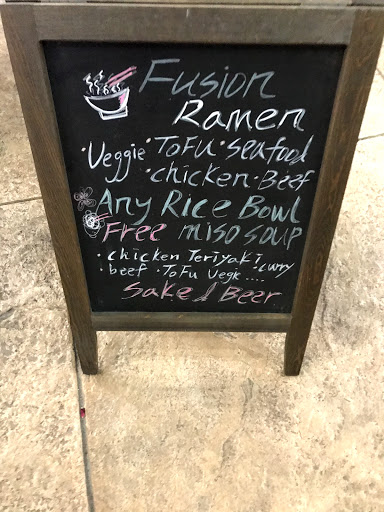 Fusion
Ramen
·Veggie·ToFu·seafood
·chicken·Beef
Any Rice Bowl
Free miso soup
·chicken Teriyaki
·curry
·beef ·ToFu Vege ....
Sake / Beer